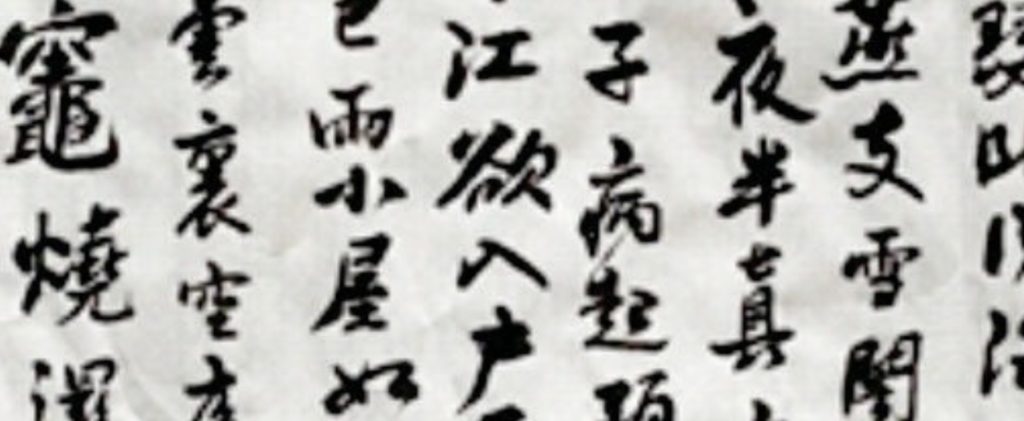 燕支雪闇
夜半真
子病起
江欲入戶
已雨小屋如
雲裏空
竈燒濕